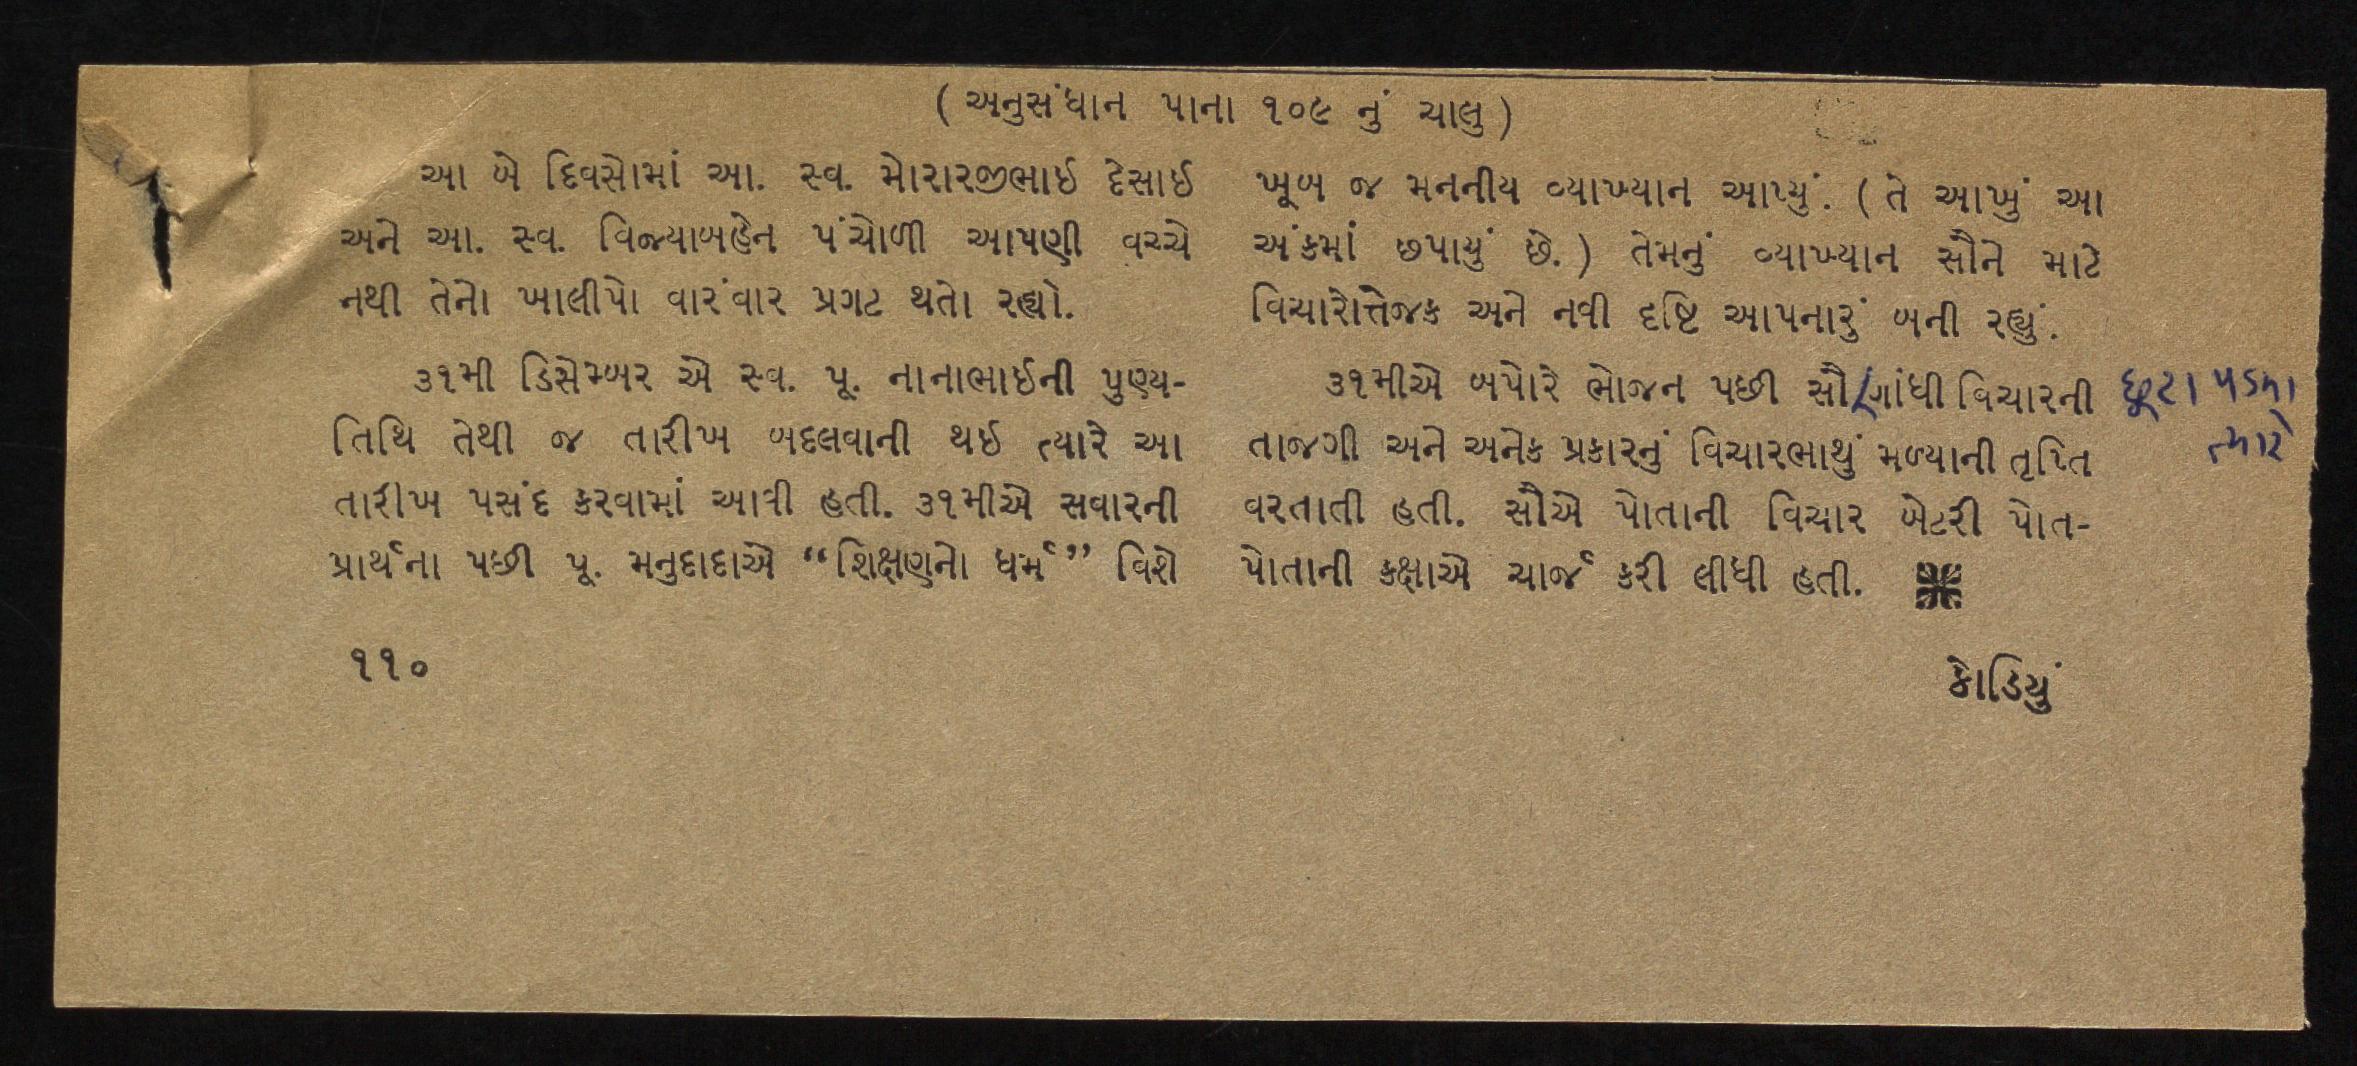 ( અનુસંધાન પાના ૧૦૯ નું ચાલુ )
આ બે દિવસોમાં આ. સ્વ. મોરારજીભાઈ દેસાઈ
અને આ. સ્વ. વિજયાબહેન પંચોળી આપણી વચ્ચે
નથી તેનો ખાલીપો વારંવાર પ્રગટ થતો રહ્યો.
૩૧મી ડિસેમ્બર એ સ્વ. પૂ. નાનાભાઈની પુણ્ય-
તિથિ તેથી જ તારીખ બદલવાની થઈ ત્યારે આ
તારીખ પસંદ કરવામાં આવી હતી. ૩૧મીએ સવારની
પ્રાર્થના પછી પૂ. મનુદાદાએ “શિક્ષણનો ધર્મ” વિશે
ખૂબ જ મનનીય વ્યાખ્યાન આપ્યું. ( તે આખું આ
અંકમાં છપાયું છે. ) તેમનું વ્યાખ્યાન સૌને માટે
વિચારોત્તેજક અને નવી દૃષ્ટિ આપનારું બની રહ્યું.
૩૧મીએ બપોરે ભોજન પછી સૌ ગાંધી વિચારની
છૂટા પડ્યા
ત્યારે
તાજગી અને અનેક પ્રકારનું વિચારભાથું મળ્યાની તૃપ્તિ
વરતાતી હતી. સૌએ પોતાની વિચાર બેટરી પોત-
પોતાની કક્ષાએ ચાર્જ કરી લીધી હતી.
૧૧૦
કોડિયું